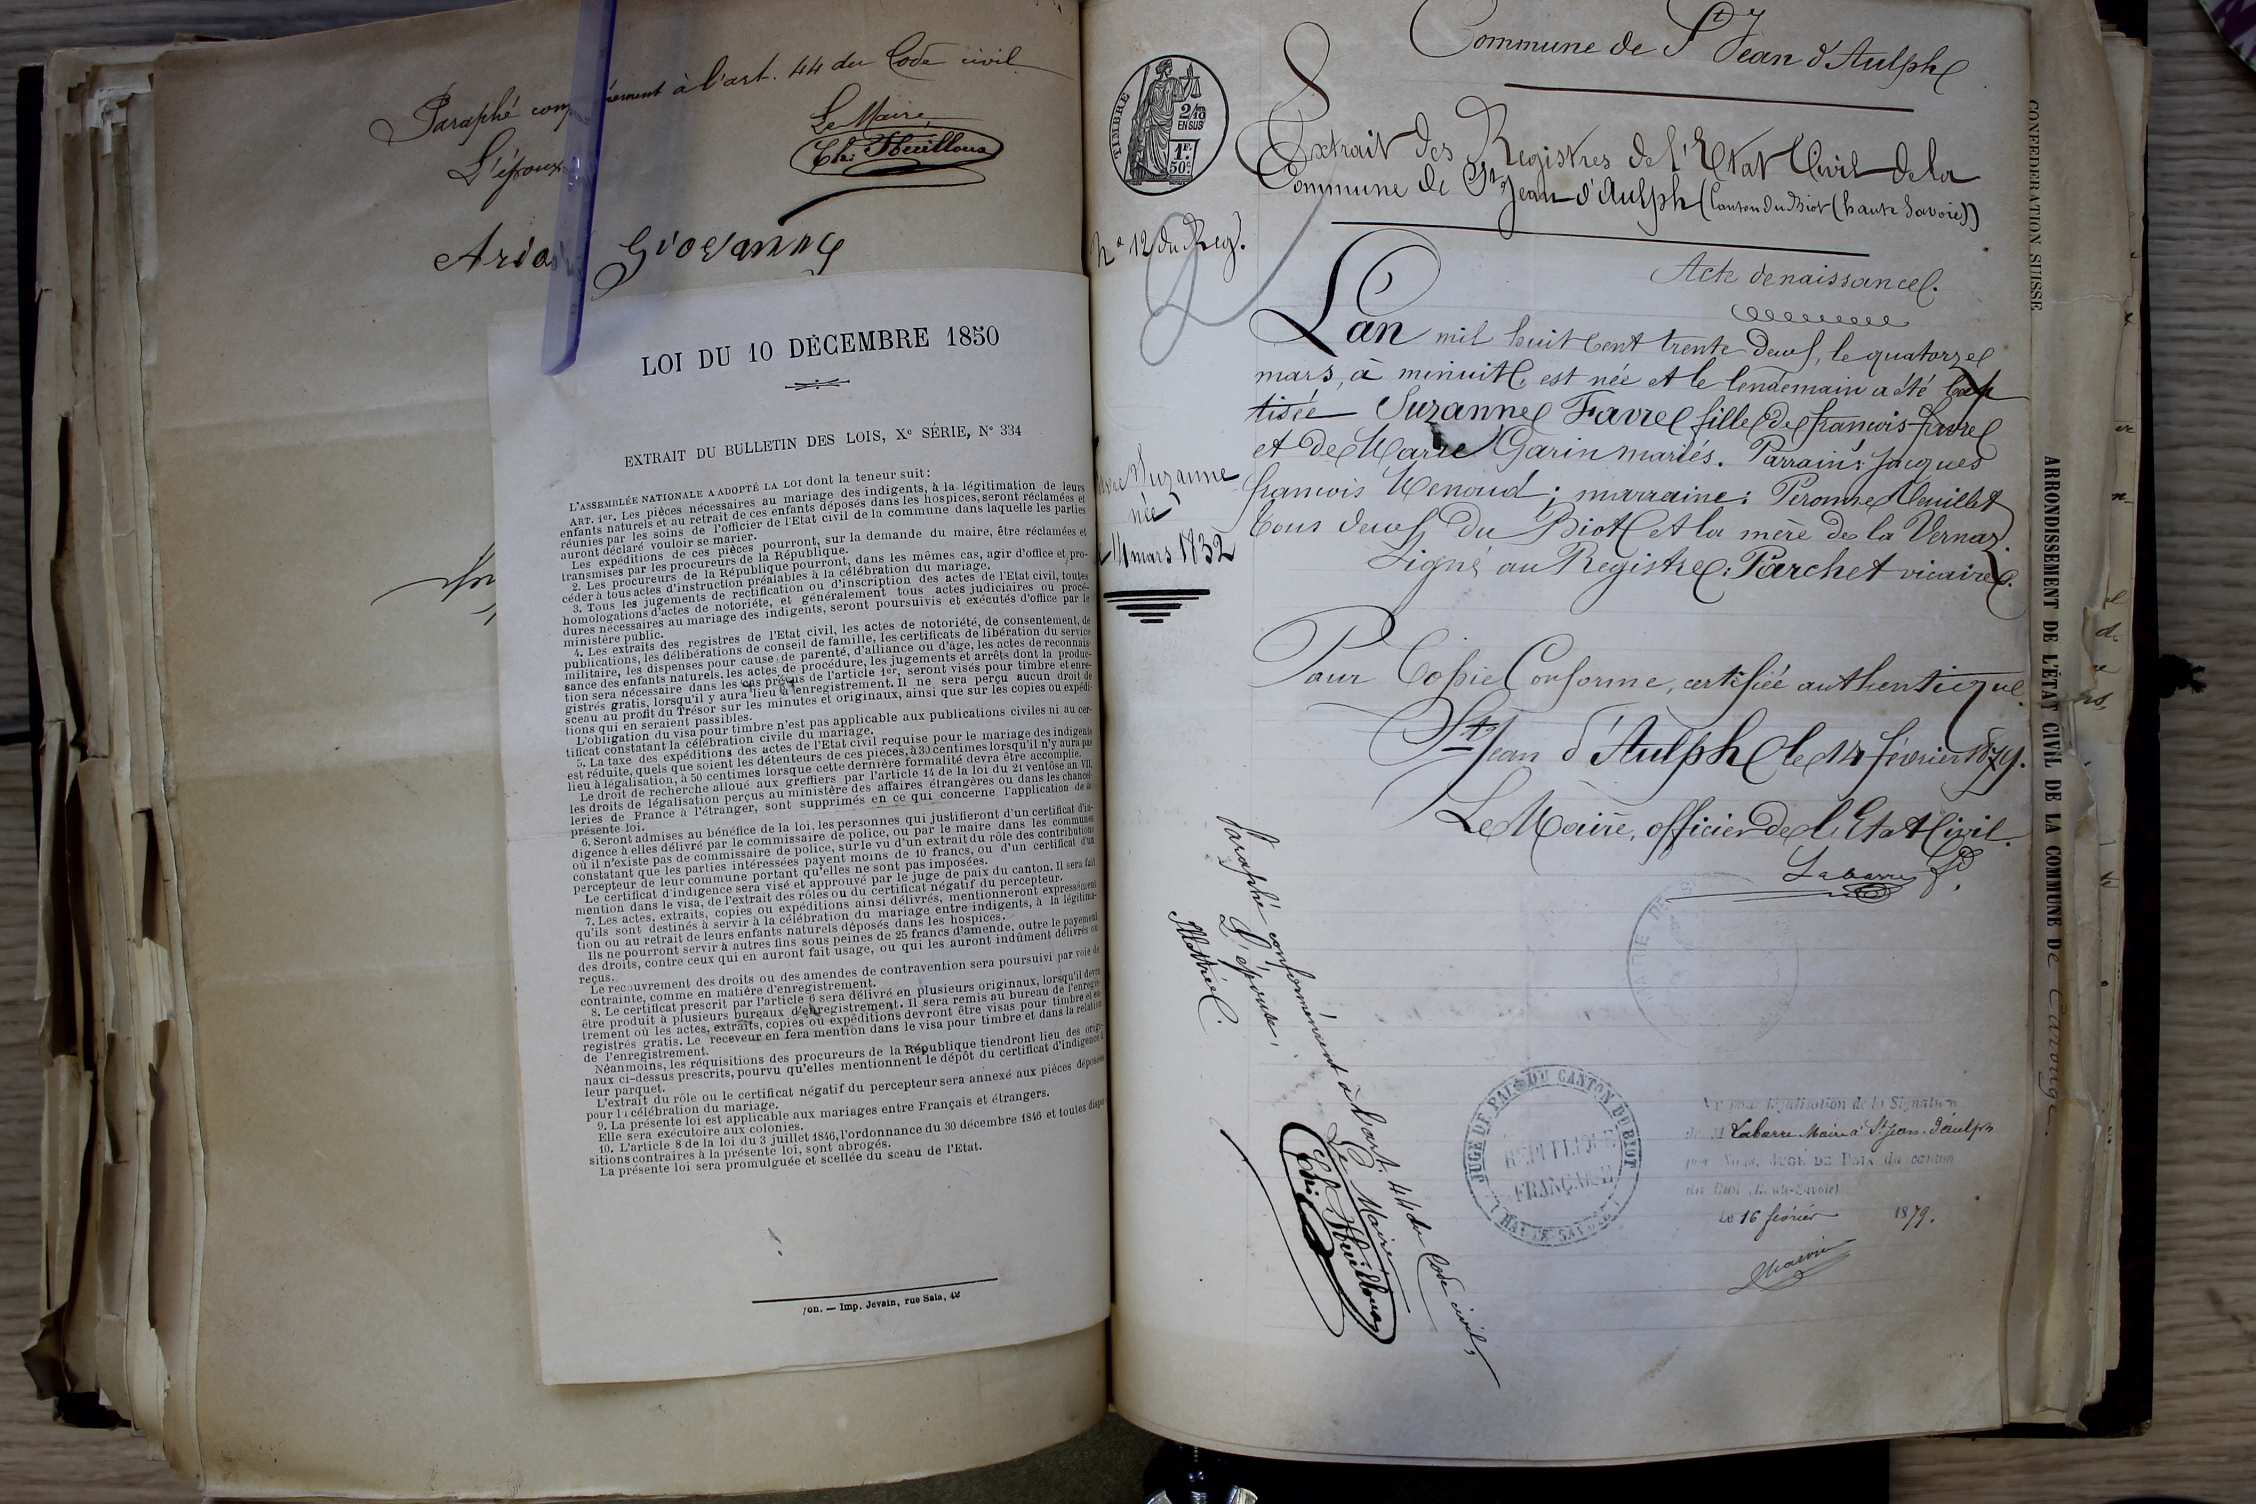 Paraphé conformément à l'art. 44 du Code civil
L'époux
Le Maire,
Giovanni
LOI DU 10 DÉCEMBRE 1850
EXTRAIT DU BULLETIN DES LOIS, Xe SÉRIE, N° 334
L'ASSEMBLÉE NATIONALE A ADOPTÉ LA LOI dont la teneur suit:
ART. 1er. Les pièces nécessaires au mariage des indigents, à la légitimation de leurs
enfants naturels et au retrait de ces enfants déposés dans les hospices, seront réclamées et
réunies par les soins de l'officier de l'Etat civil de la commune dans laquelle les parties
auront déclaré vouloir se marier.
Les expéditions de ces pièces pourront, sur la demande du maire, être réclamées et
transmises par les procureurs de la République.
2. Les procureurs de la République pourront, dans les mêmes cas, agir d'office et pro-
céder à tous actes d'instruction préalables à la célébration du mariage.
3. Tous les jugements de rectification ou d'inscription des actes de l'Etat civil, toutes
homologations d'actes de notoriété, et généralement tous actes judiciaires ou procé-
dures nécessaires au mariage des indigents, seront poursuivis et exécutés d'office par le
ministère public.
4. Les extraits des registres de l'Etat civil, les actes de notoriété, de consentement, de
publications, les délibérations de conseil de famille, les certificats de libération du service
militaire, les dispenses pour cause de parenté, d'alliance ou d'âge, les actes de reconnais-
sance des enfants naturels, les actes de procédure, les jugements et arrêts dont la produc-
tion sera nécessaire dans les cas prévus de l'article 1er, seront visés pour timbre et enre-
gistrés gratis, lorsqu'il y aura lieu à enregistrement. Il ne sera perçu aucun droit de
sceau au profit du Trésor sur les minutes et originaux, ainsi que sur les copies ou expédi-
tions qui en seraient passibles.
L'obligation du visa pour timbre n'est pas applicable aux publications civiles ni au cer-
tificat constatant la célébration civile du mariage.
5. La taxe des expéditions des actes de l'Etat civil requise pour le mariage des indigents
est réduite, quels que soient les détenteurs de ces pièces, à 30 centimes lorsqu'il n'y aura pas
lieu à légalisation, à 50 centimes lorsque cette dernière formalité devra être accomplie.
Le droit de recherche alloué aux greffiers par l'article 14 de la loi du 21 ventôse an VII,
les droits de légalisation perçus au ministère des affaires étrangères ou dans les chancel-
leries de France à l'étranger, sont supprimés en ce qui concerne l'application de la
présente loi.
6. Seront admises au bénéfice de la loi, les personnes qui justifieront d'un certificat d'in-
digence à elles délivré par le commissaire de police, ou par le maire dans les communes
où il n'existe pas de commissaire de police, sur le vu d'un extrait du rôle des contributions
constatant que les parties intéressées payent moins de 10 francs, ou d'un certificat d'un
percepteur de leur commune portant qu'elles ne sont pas imposées.
Le certificat d'indigence sera visé et approuvé par le juge de paix du canton. Il sera fait
mention dans le visa, de l'extrait des rôles ou du certificat négatif du percepteur.
7. Les actes, extraits, copies ou expéditions ainsi délivrés, mentionneront expressément
qu'ils sont destinés à servir à la célébration du mariage entre indigents, à la légitima-
tion ou au retrait de leurs enfants naturels déposés dans les hospices.
Ils ne pourront servir à autres fins sous peines de 25 francs d'amende, outre le payement
des droits, contre ceux qui en auront fait usage, ou qui les auront indûment délivrés ou
reçus.
Le recouvrement des droits ou des amendes de contravention sera poursuivi par voie de
contrainte, comme en matière d'enregistrement.
8. Le certificat prescrit par l'article 6 sera délivré en plusieurs originaux, lorsqu'il devra
être produit à plusieurs bureaux d'enregistrement. Il sera remis au bureau de l'enregis-
trement où les actes, extraits, copies ou expéditions devront être visas pour timbre et en-
registrés gratis. Le receveur en fera mention dans le visa pour timbre et dans la relation
de l'enregistrement.
Néanmoins, les réquisitions des procureurs de la République tiendront lieu des origi-
naux ci-dessus prescrits, pourvu qu'elles mentionnent le dépôt du certificat d'indigence à
leur parquet.
L'extrait du rôle ou le certificat négatif du percepteur sera annexé aux pièces déposées
pour la célébration du mariage.
9. La présente loi est applicable aux mariages entre Français et étrangers.
Elle sera exécutoire aux colonies.
10. L'article 8 de la loi du 3 juillet 1846, l'ordonnance du 30 décembre 1846 et toutes dispo-
sitions contraires à la présente loi, sont abrogés.
La présente loi sera promulguée et scellée du sceau de l'Etat.
yon. — Imp. Jevain, rue Sala, 42
TIMBRE
2/10
EN SUS
1F.
50c
Commune de St Jean d'Aulph
Extrait des Registres de l'Etat Civil de la
Commune de St Jean d'Aulph (Canton du Biot (haute Savoie))
No 12 du Reg.
Acte de naissance.
L'an mil huit cent trente deux, le quatorze
mars, à minuit, est née et le lendemain a été bap
tisée Suzanne Favre fille de françois favre
et de Marie Garin mariés. Parrain: Jacques
françois Renoud; marraine: Peronne
tous deux du Biot et la mère de la Vernaz.
Signé au Registre: Parchet vicaire.
Suzanne
née
14 mars 1832
Pour Copie Conforme, certifiée authentique.
St Jean d'Aulph le 14 février 1879.
Le Maire, officier de l'Etat Civil.
Labarre
Paraphé conformément à l'art. 44 du Code civil,
L'épouse,
Le Maire
JUGE DE PAIX DU CANTON DU BIOT
RÉPUBLIQUE
FRANÇAISE
HAUTE SAVOIE
Vu pour légalisation de la Signature
de M Labarre Maire à St Jean d'aulph
par Nous, JUGE DE PAIX du canton
du Biot (Haute-Savoie)
Le 16 février 1879.
CONFÉDÉRATION SUISSE
ARRONDISSEMENT DE L'ÉTAT CIVIL DE LA COMMUNE DE Carouge.